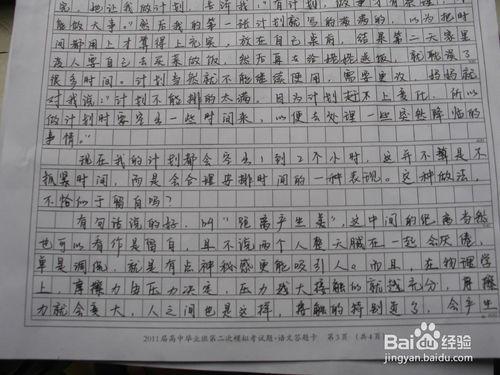 能做大事。”然后我的第一张计划就写的满满的,以为把时
间都用上才算得上充实,放在自己桌前,结果第二天家里
没人要自己去买菜做饭,然后再去给姥姥送饭,就耽误了
很多时间。计划当然就不能继续使用,需要更改,妈妈就
对我说:“计划不能排的太满。因为计划赶不上变化,所以
做计划时要空出一些时间来,以便去处理一些突然降临的
事情。”
现在我的计划都会空出1到2个小时,这并不算是不
抓紧时间,而是会合理安排时间的一种表现。这种做法,
不恰似于留白吗?
有句话说的好,叫“距离产生美”,这中间的距离当然
也可以看作是留白,且不说两个人整天腻在一起会厌倦,
单是调侃,就是有点神秘感更能吸引人。而且,在物理学
上,摩擦力由压力决定,压力越大接触的就越充分,摩擦
力就会变大,人之间也是这样,接触的特别近了,会产生
2011届高中毕业班第二次模拟考试题·语文答题卡 第3页 (共4页)
Baidu 经验
jingyan.baidu.com